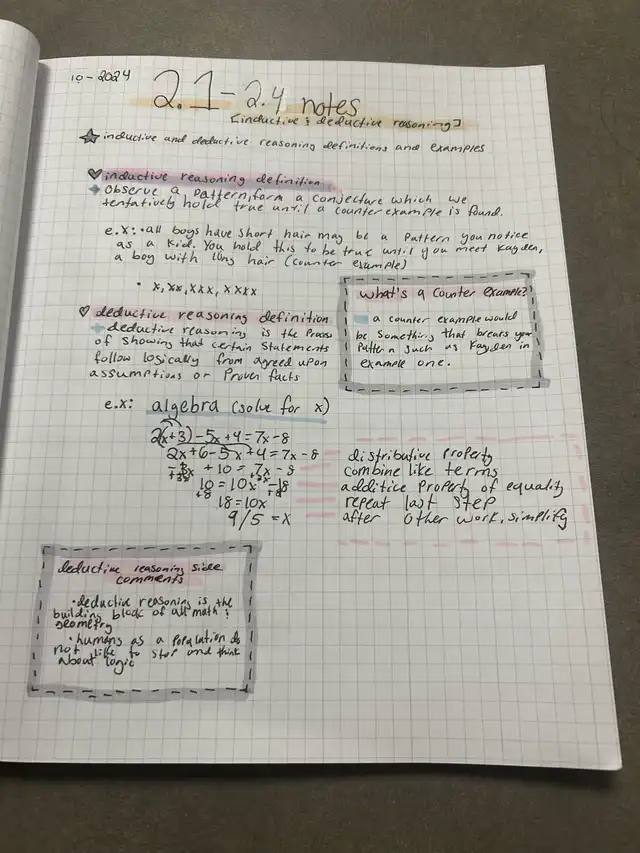 10-2024
2.1-2.4 notes
[inductive & deductive reasoning]
inductive and deductive reasoning definitions and examples
inductive reasoning definition
observe a pattern, form a conjecture which we
tentatively hold true until a counterexample is found.
e.x: • all boys have short hair may be a pattern you notice
as a kid. You hold this to be true until you meet Kayden,
a boy with long hair (counter example)
• x, xx, xxx, xxxx
what's a counter example?
a counter example would
be something that breaks your
pattern such as Kayden in
example one.
deductive reasoning definition
deductive reasoning is the process
of showing that certain statements
follow logically from agreed upon
assumptions or proven facts
e.x: algebra (solve for x)
2(x+3)-5x+4=7x-8
2x+6-5x+4=7x-8 distributive property
-3x+10=7x-8 combine like terms
+3x +3x
10=10x-8 additice property of equality
+8 +8
18=10x repeat last step
9/5=x after other work, simplify
deductive reasoning side
comments
• deductive reasoning is the
building block of all math &
geometry
• humans as a population do
not like to stop and think
about logic